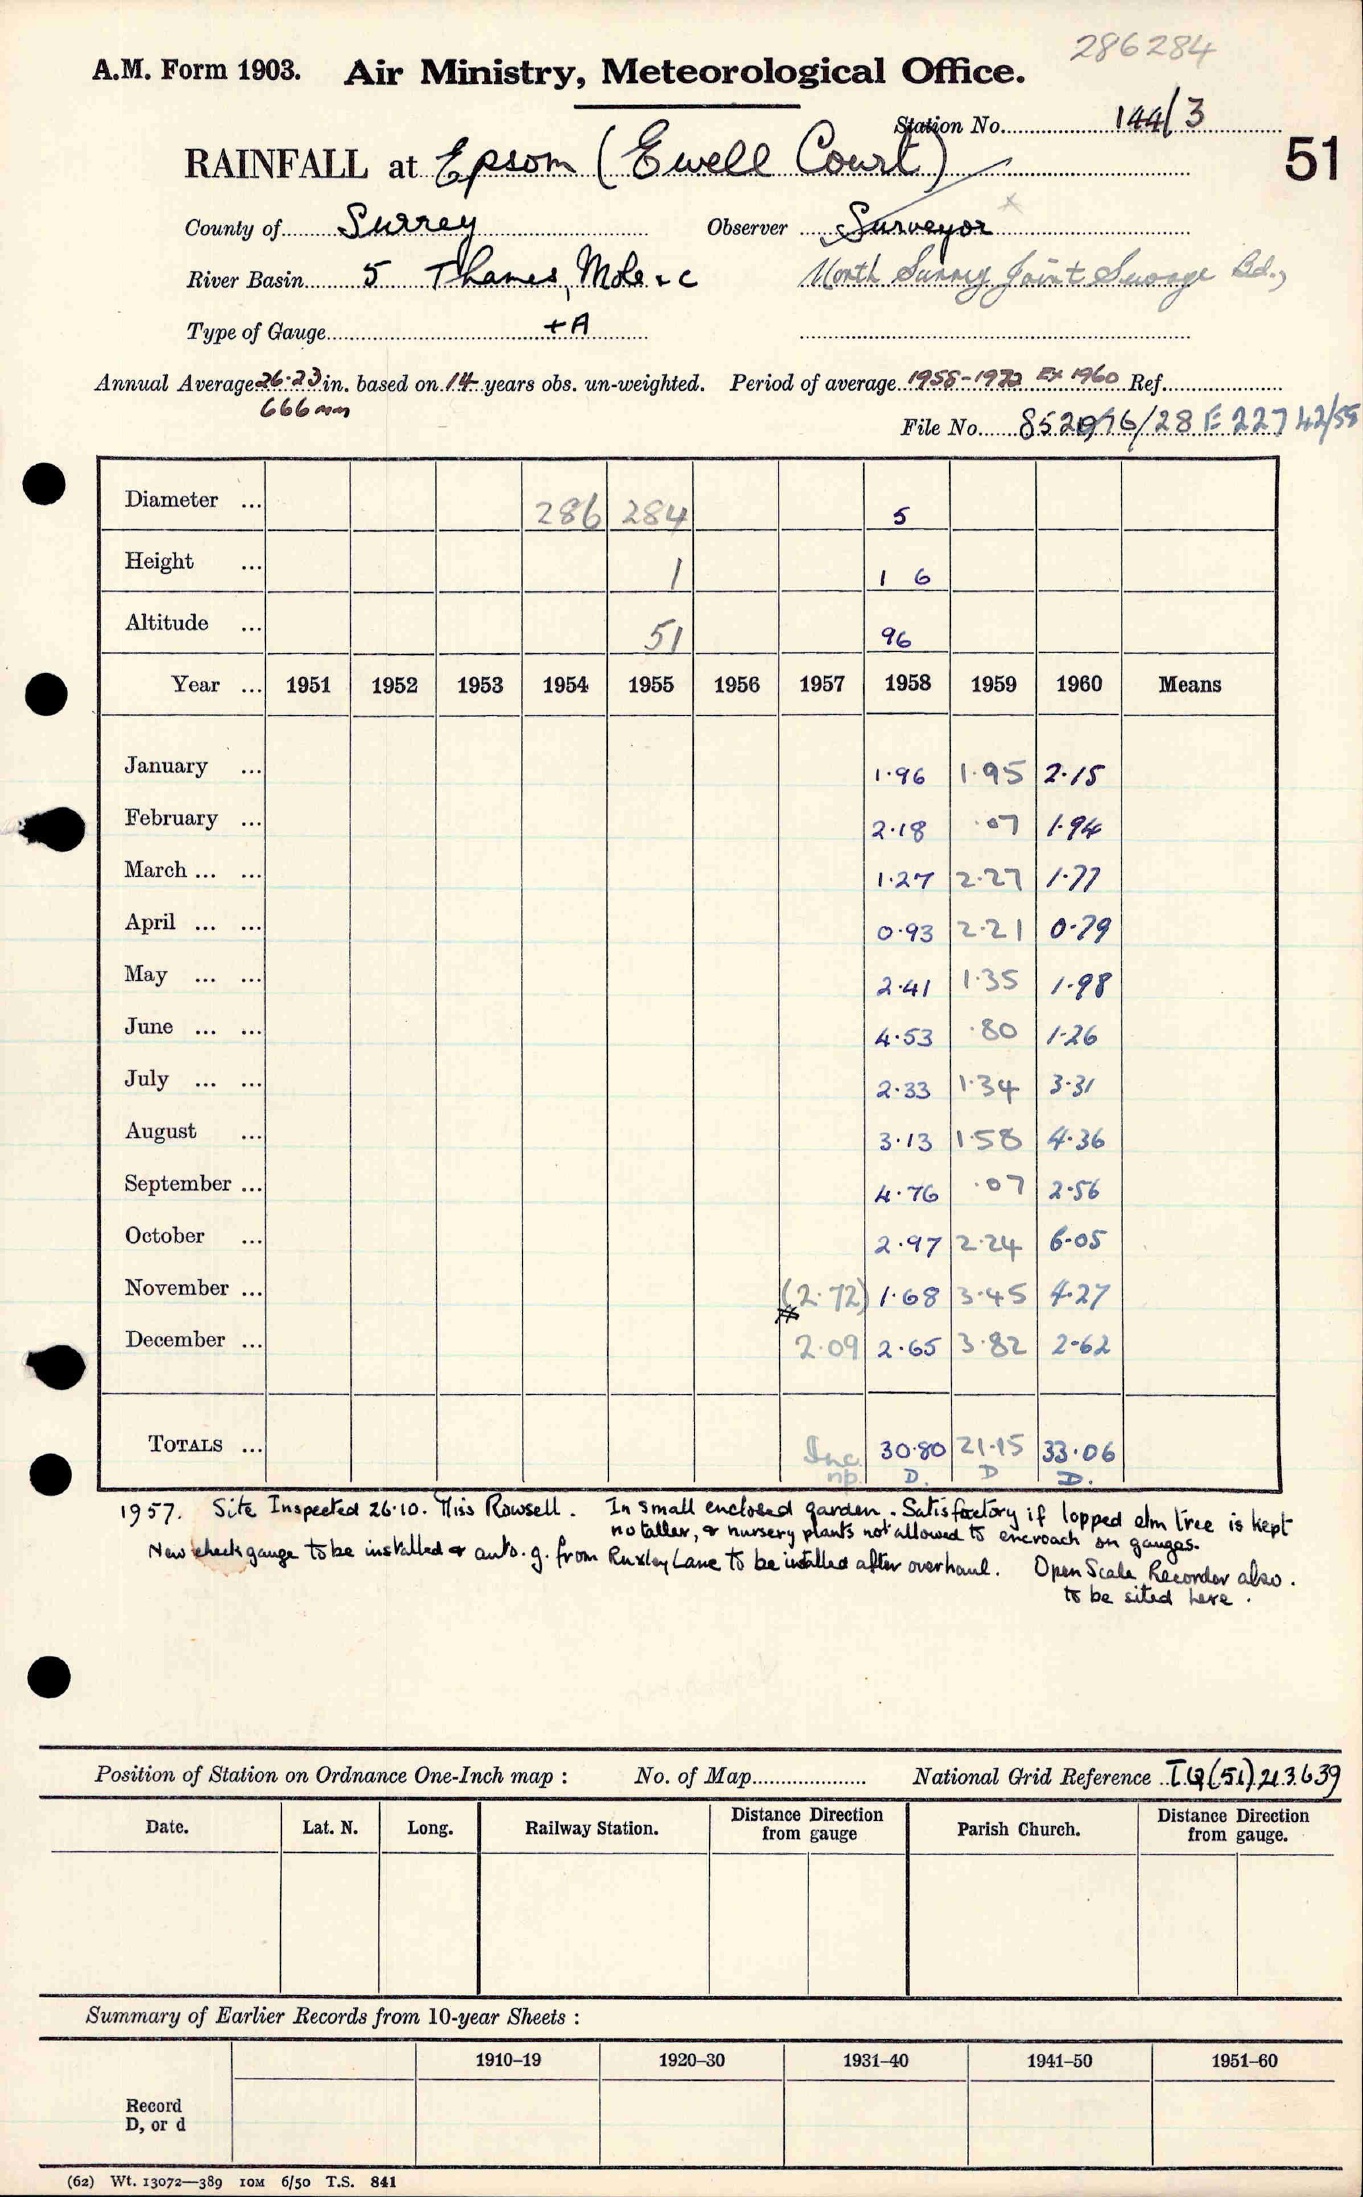 286284
A.M. Form 1903. Air Ministry, Meteorological Office.
Station No. 144/3
RAINFALL at Epsom (Ewell Court)
51
County of Surrey Observer Surveyor
River Basin 5 Thames, Mole & c North Surrey Joint Sewage Bd.,
Type of Gauge +A
Annual Average 26.23 in. based on 14 years obs. un-weighted. Period of average 1958-1972 Ex 1960 Ref.
666 mm
File No. 852076/28 E 22742/55
Diameter ... 286 284 5
Height ... 1 1 6
Altitude ... 51 96
Year ... 1951 1952 1953 1954 1955 1956 1957 1958 1959 1960 Means
January ... 1.96 1.95 2.15
February ... 2.18 .07 1.94
March ... ... 1.27 2.27 1.77
April ... ... 0.93 2.21 0.79
May ... ... 2.41 1.35 1.98
June ... ... 4.53 .80 1.26
July ... ... 2.33 1.34 3.31
August ... 3.13 1.58 4.36
September ... 4.76 .07 2.56
October ... 2.97 2.24 6.05
November ... (2.72) 1.68 3.45 4.27
December ... 2.09 2.65 3.82 2.62
TOTALS ... Inc 30.80 21.15 33.06
np. D. D D.
1957. Site Inspected 26.10. Miss Rowsell. In small enclosed garden. Satisfactory if lopped elm tree is kept
no taller, & nursery plants not allowed to encroach on gauges.
New check gauge to be installed & auto. g. from Ruxley Lane to be installed after overhaul. Open Scale Recorder also.
to be sited here.
Position of Station on Ordnance One-Inch map : No. of Map National Grid Reference TQ(51)213639
Date. Lat. N. Long. Railway Station. Distance Direction from gauge Parish Church. Distance Direction from gauge.
Summary of Earlier Records from 10-year Sheets :
1910–19 1920–30 1931–40 1941–50 1951–60
Record
D, or d
(62) Wt. 13072—389 10M 6/50 T.S. 841